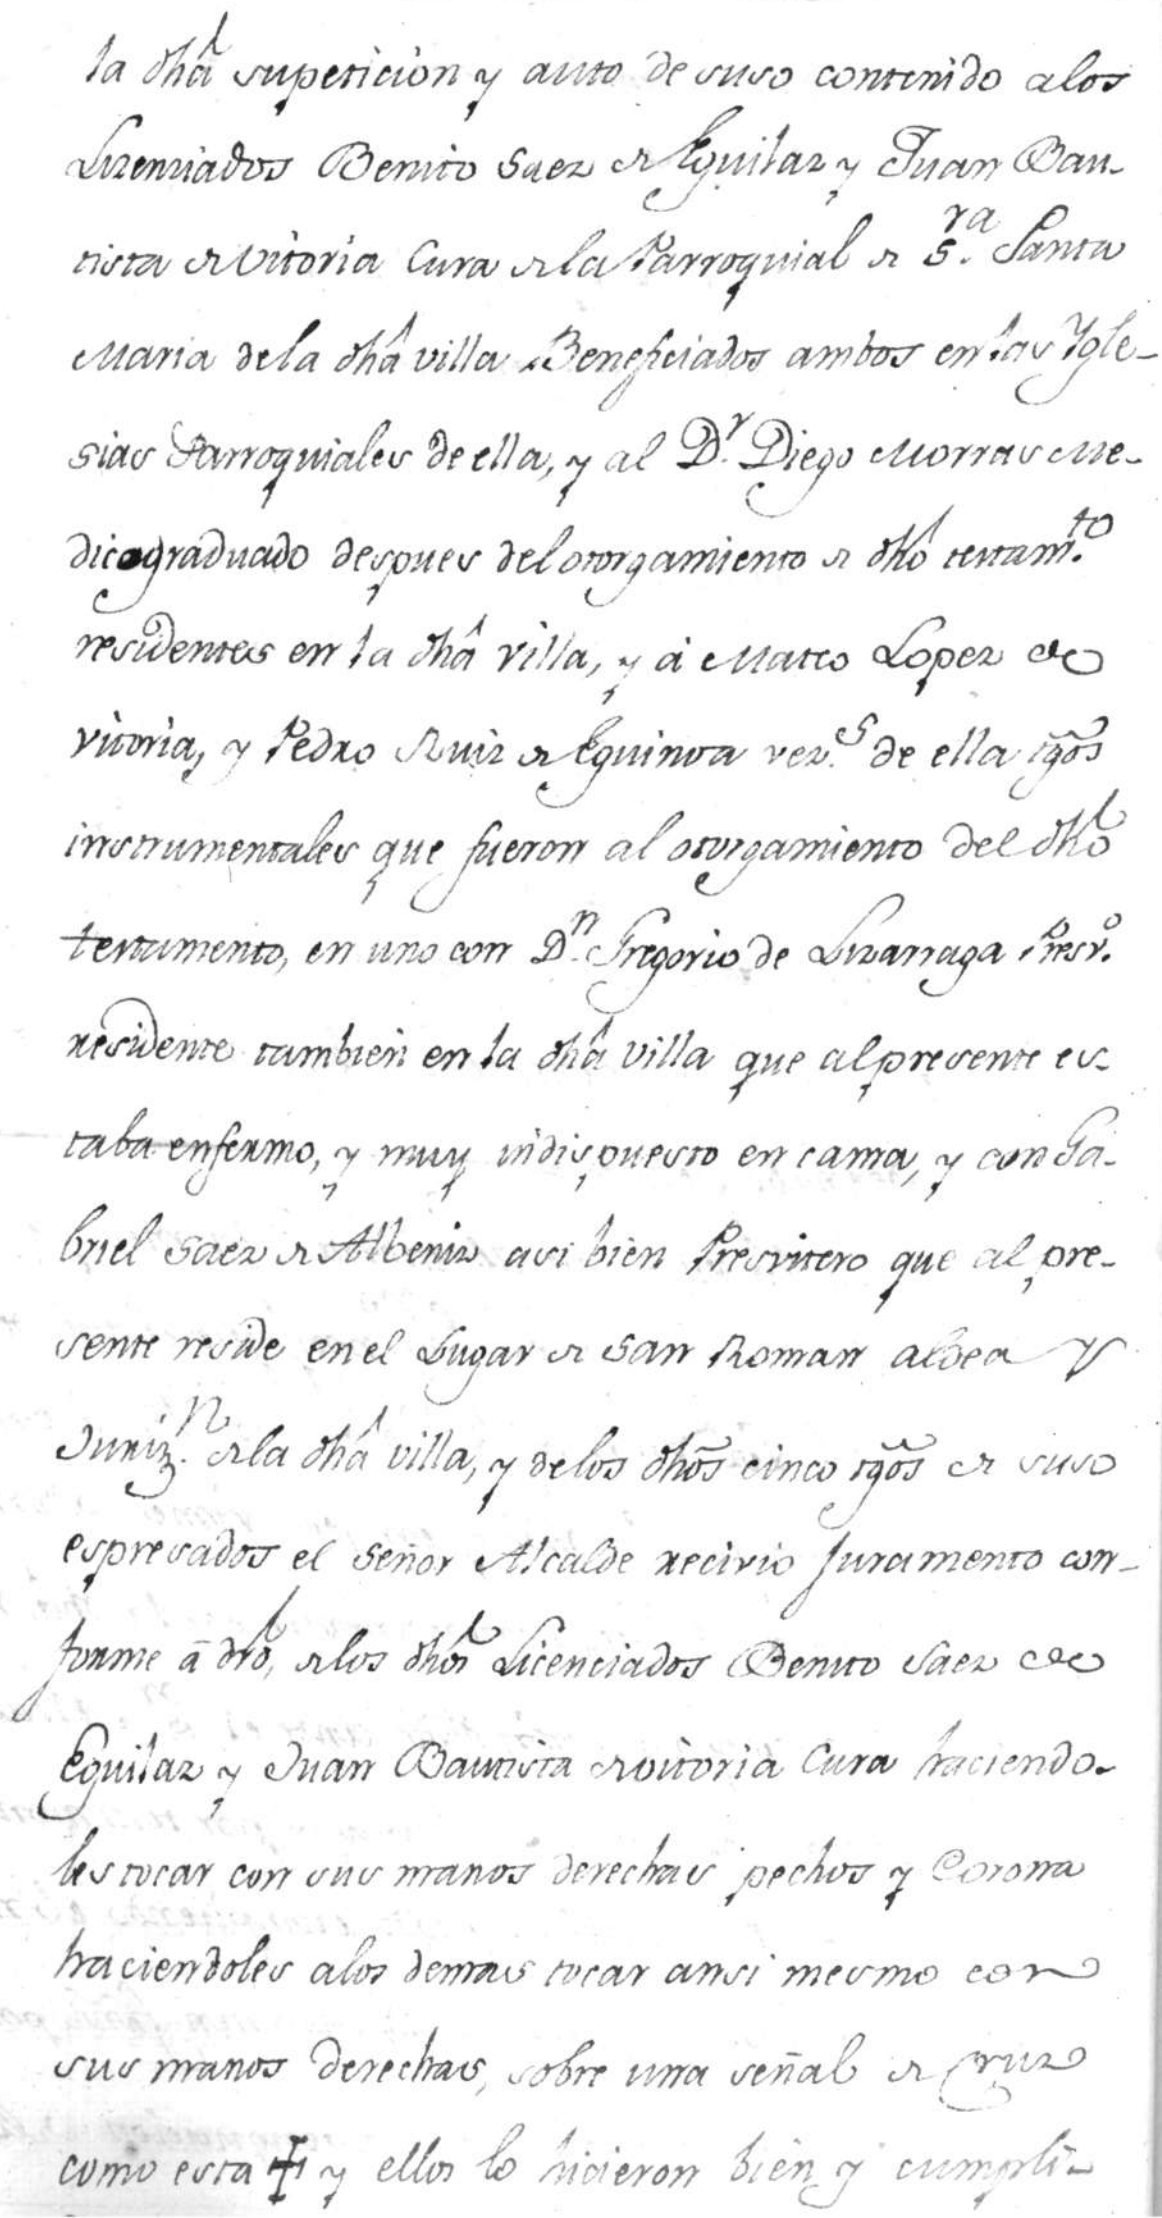 la dhâ supeticion y auto de suso contenido alos
Lizenziados Benito Saez de Eguilaz y Juan Bau-
tista de Vitoria Cura de la Parroquial de S.ra Santa
Maria dela dhâ villa Beneficiados ambos en las Ygle-
sias Parroquiales de ella, y al D.r Diego Morras Me-
dico graduado despues del otorgamiento de dhô testam.to
residentes en la dhâ villa, y â Mateo Lopez de
vitoria, y Pedro Ruiz de Eguinoa vez.s de ella tg̃os
instrumentales que fueron al otorgamiento del dhô
testamento, en uno con D.n Gregorio de Lizarraga Presv.o
residente tambien en la dhâ villa que alpresente es-
taba enfermo, y muy indispuesto en cama, y con Ga-
briel Saez de Albeniz asi bien Presvitero que al pre-
sente reside en el Lugar de San Roman aldea y
Juriz.n de la dhâ villa, y delos dhõs cinco tg̃os de suso
espresados el Señor Alcalde recivio Juramento con-
forme ā drô, de los dhôs Licenciados Benito Saez de
Eguilaz y Juan Bautista de vitoria Cura haciendo-
les tocar con sus manos derechas pechos y Corona
haciendoles alos demas tocar ansi mesmo con
sus manos derechas, sobre una señal de Cruz
como esta ✝ y ellos lo hicieron bien y cumpli-